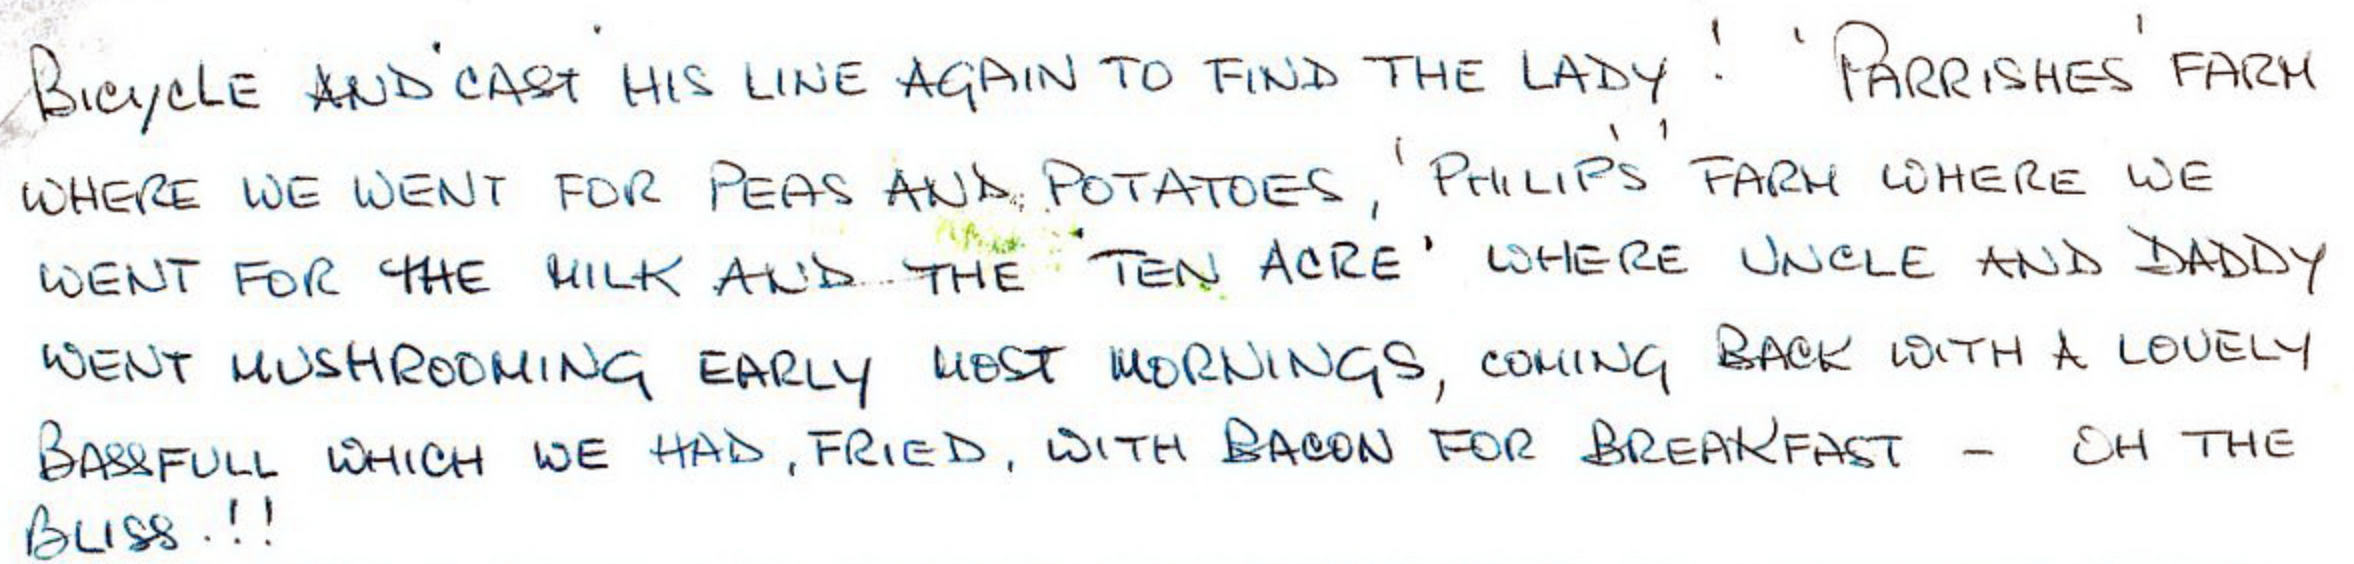 BICYCLE AND 'CAST' HIS LINE AGAIN TO FIND THE LADY! 'PARRISHES' FARM
WHERE WE WENT FOR PEAS AND POTATOES, 'PHILIP'S' FARM WHERE WE
WENT FOR THE MILK AND THE 'TEN ACRE' WHERE UNCLE AND DADDY
WENT MUSHROOMING EARLY MOST MORNINGS, COMING BACK WITH A LOVELY
BAGSFULL WHICH WE HAD, FRIED, WITH BACON FOR BREAKFAST - OH THE
BLISS.!!